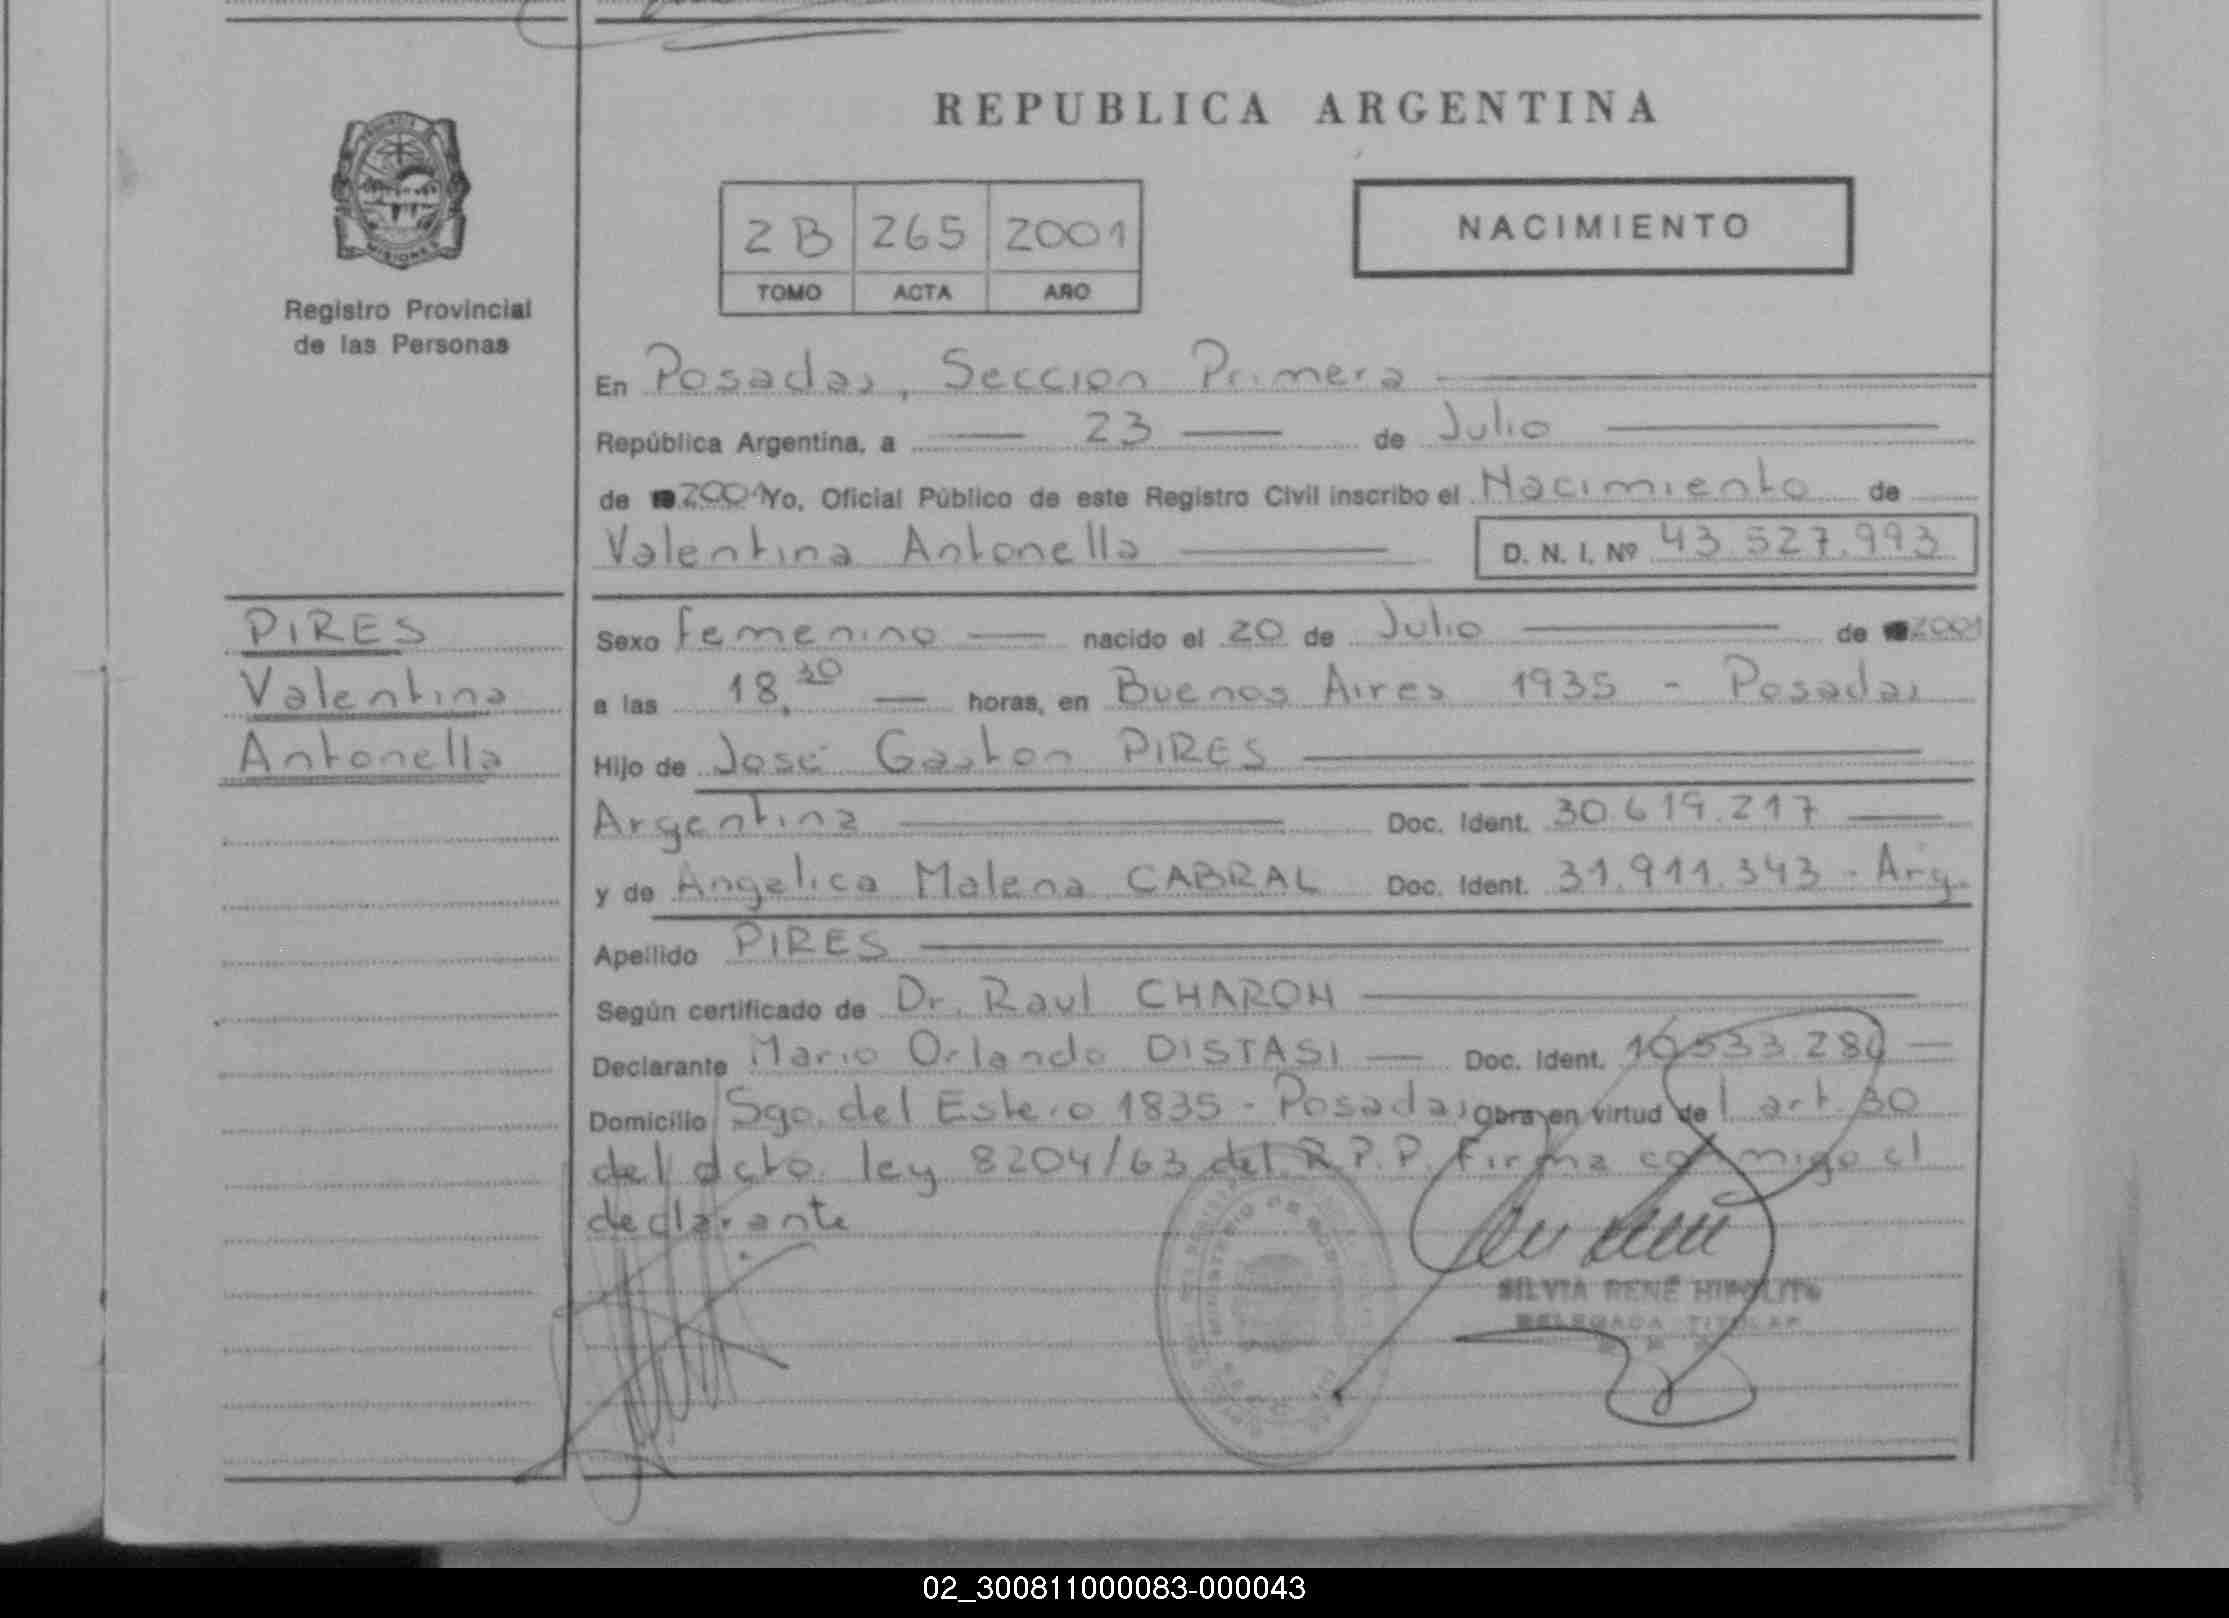 REPUBLICA ARGENTINA
MISIONES
Registro Provincial
de las Personas
2B 265 2001
TOMO ACTA AÑO
NACIMIENTO
En Posadas, Seccion Primera
República Argentina, a 23 de Julio
de 2001 Yo, Oficial Público de este Registro Civil inscribo el Nacimiento de
Valentina Antonella D. N. I. Nº 43.527.993
PIRES
Valentina
Antonella
Sexo femenino nacido el 20 de Julio de 2001
a las 18,30 horas, en Buenos Aires 1935 - Posadas
Hijo de José Gaston PIRES
Argentina Doc. Ident. 30.619.217
y de Angelica Malena CABRAL Doc. Ident. 31.911.343 - Arg.
Apellido PIRES
Según certificado de Dr. Raul CHARON
Declarante Mario Orlando DISTASI Doc. Ident.
Domicilio Sgo. del Estero 1835 - Posadas Obra en virtud del art. 30
del dcto. ley 8204/63 del R.P.P. Firma conmigo el
declarante
SILVIA RENÉ HIPOLITO
DELEGADA TITULAR
02_300811000083-000043